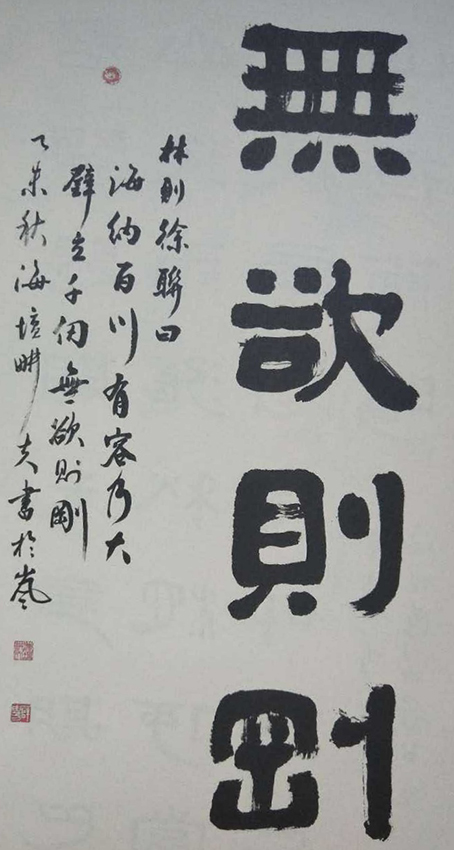 無欲則剛
林則徐聯曰
海納百川有容乃大
壁立千仞無欲則剛
乙未秋海壇耕夫書於嵐